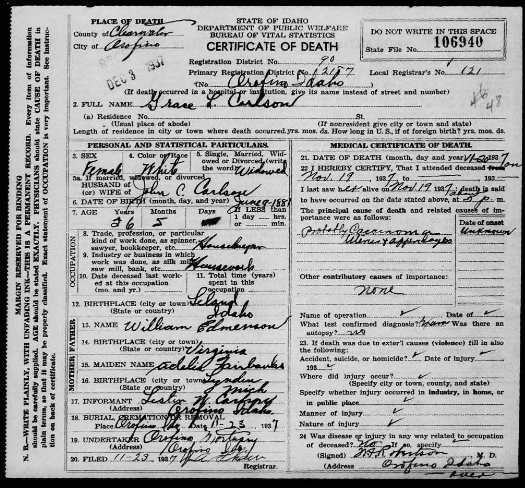 PLACE OF DEATH
County of Clearwater
City of Orofino
DEC 3 1937
STATE OF IDAHO
DEPARTMENT OF PUBLIC WELFARE
BUREAU OF VITAL STATISTICS
CERTIFICATE OF DEATH
DO NOT WRITE IN THIS SPACE
State File No. 106940
Registration District No. 90
Primary Registration District No. 2187
Local Registrar's No. 121
(No. Orofino Idaho
(If death occurred in a hospital or institution, give its name instead of street and number)
46
48
2. FULL NAME Grace L. Carlson
(a) Residence No. St.
(Usual place of abode) (If nonresident give city or town and state)
Length of residence in city or town where death occurred. yrs. mos. ds. How long in U. S., if of foreign birth? yrs. mos. ds.
PERSONAL AND STATISTICAL PARTICULARS.
3. SEX Female
4. Color or Race White
5. Single, Married, Widowed or Divorced (write the word) Widowed
5a. If married, widowed or divorced
HUSBAND of
(or) WIFE of John C. Carlson
6. DATE OF BIRTH (month, day, and year) June 9-1881
7. AGE 56 5 Days If LESS than 1 day hrs. or min.
8. Trade, profession, or particular kind of work done, as spinner, sawyer, bookkeeper, etc. Housekeeper
9. Industry or business in which work was done, as silk mill, saw mill, bank, etc. Housework
10. Date deceased last worked at this occupation (mo. and yr.)
11. Total time (years) spent in this occupation
OCCUPATION
12. BIRTHPLACE (city or town) Leland
(State or country) Idaho
13. NAME William Edmenson
14. BIRTHPLACE (city or town)
(State or country) Virginia
15. MAIDEN NAME Adelia Fairbanks
16. BIRTHPLACE (city or town)
(State or country) Mich
MOTHER FATHER
17. INFORMANT
(Address) Orofino Idaho.
18. BURIAL CREMATION OR REMOVAL
Place Orofino Ida. Date 11-23 1937
19. UNDERTAKER Orofino Mortuary
(Address) Orofino Ida.
20. FILED 11-23 1937
Registrar.
MEDICAL CERTIFICATE OF DEATH.
21. DATE OF DEATH (month, day and year) 11-20 1937
22. I HEREBY CERTIFY, That I attended deceased from
Nov. 19 1937, to 193
I last saw her alive on Nov 19 1937; death is said
to have occurred on the date stated above, at 5 p. m.
The principal cause of death and related causes of importance were as follows:
Date of onset
Probably Carcinoma Unknown
Uterus & appendages
Other contributory causes of importance:
None
Name of operation Date of
What test confirmed diagnosis? Exam Was there an autopsy? no
23. If death was due to external causes (violence) fill in also the following:
Accident, suicide, or homicide? Date of injury
193
Where did injury occur?
(Specify city or town, county, and state)
Specify whether injury occurred in industry, in home, or in public place
Manner of injury
Nature of injury
24 Was disease or injury in any way related to occupation
of deceased? No If so, specify
(Signed) M. D.
(Address) Orofino Idaho
over
MARGIN RESERVED FOR BINDING
N. B.—WRITE PLAINLY, WITH UNFADING INK—THIS IS A PERMANENT RECORD. Every item of information should be carefully supplied. AGE should be stated EXACTLY. PHYSICIANS should state CAUSE OF DEATH in plain terms so that it may be properly classified. Exact statement of OCCUPATION is very important. See instruction on back of certificate.